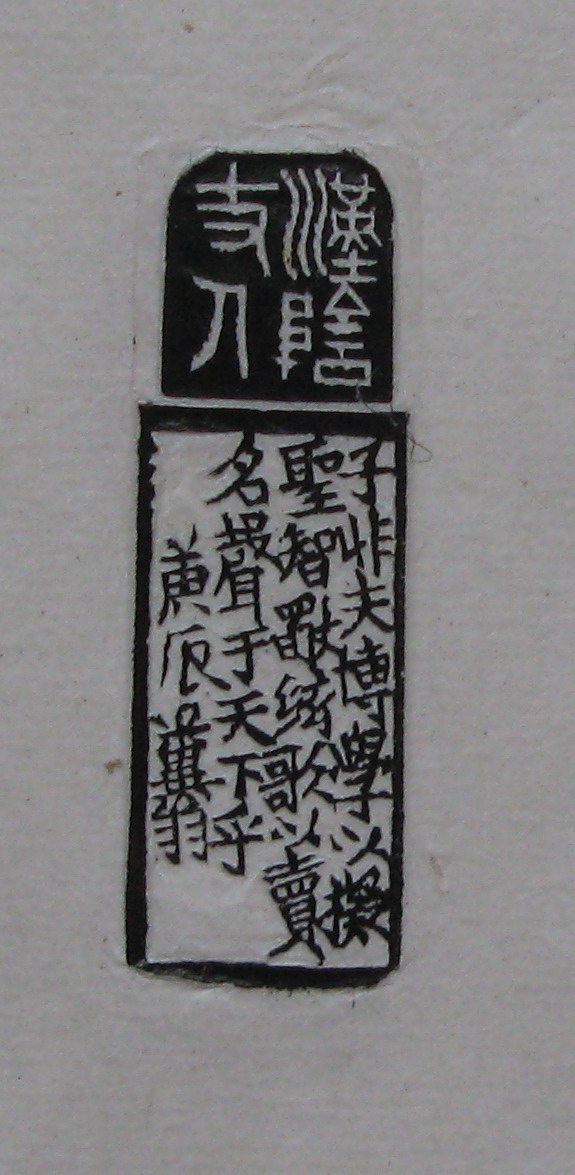 漢陰
丈人
子非夫博學以擬
聖智獨絃歌以賣
名聲于天下乎
庚辰糞翁